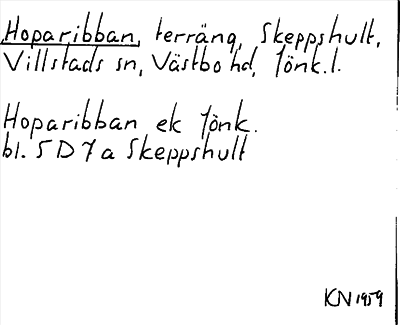 Hoparibban, terräng, Skeppshult,
Villstads sn, Västbo hd, Jönk.l.
Hoparibban ek Jönk.
bl. 5D7a Skeppshult
KN 1959